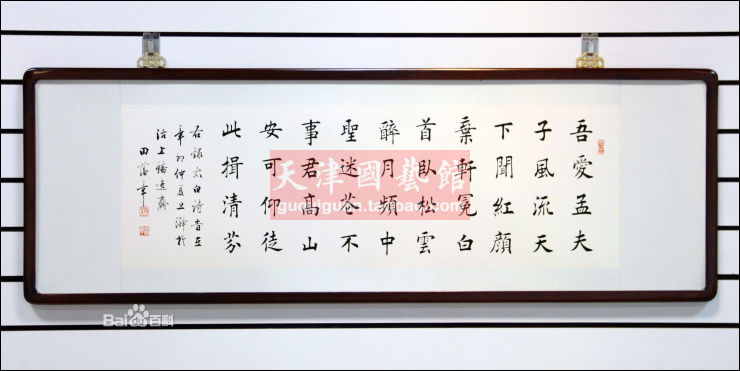 吾愛孟夫
子風流天
下聞紅顏
棄軒冕白
首臥松雲
醉月頻中
聖迷花不
事君高山
安可仰徒
此揖清芬
右錄太白诗歲在
辛卯仲夏上澣於
沽上
田蘊章
天津國藝館
guoyiguan.taobao.com
Bai百科